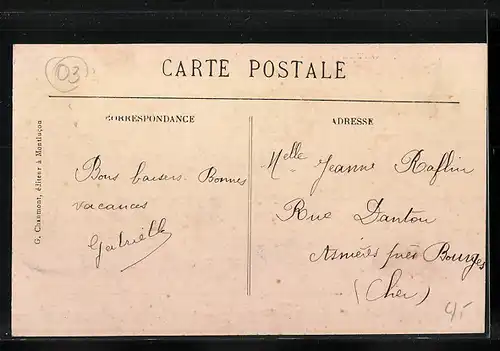 03
CARTE POSTALE
CORRESPONDANCE
ADRESSE
G. Chaumont, éditeur à Montluçon
Bons baisers. Bonnes
vacances
Gabrielle
Melle Jeanne Raflin
Rue Danton
Asnières près Bourges
(Cher)
4,-